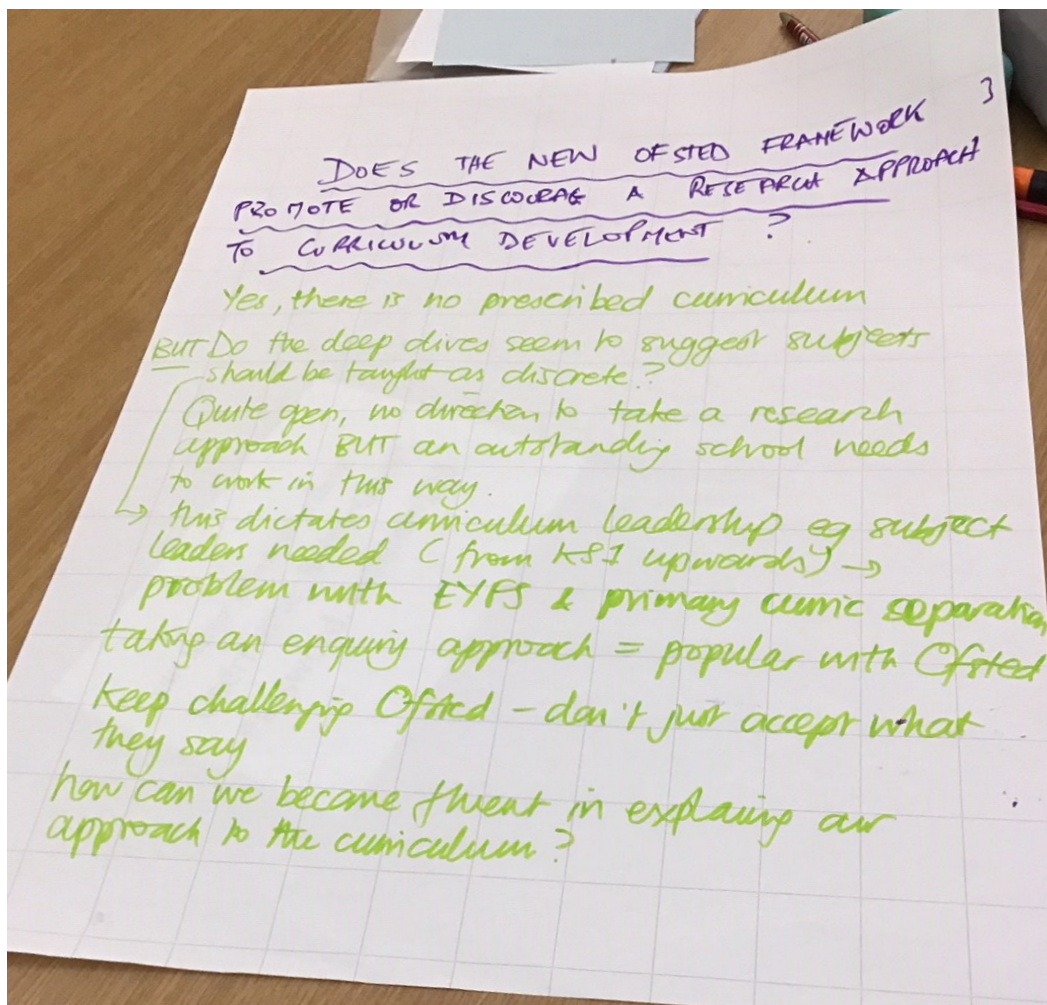 3
DOES THE NEW OFSTED FRAMEWORK
PROMOTE OR DISCOURAG A RESEARCH APPROACH
TO CURRICULUM DEVELOPMENT ?
Yes, there is no prescribed curriculum
BUT Do the deep dives seem to suggest subjects
should be taught as discrete?
Quite open, no direction to take a research
approach BUT an outstanding school needs
to work in this way.
→ this dictates curriculum leadership eg subject
leaders needed (from KS1 upwards) →
problem with EYFS & primary curric separation
taking an enquiry approach = popular with Ofsted
keep challenging Ofsted - don't just accept what
they say
how can we become fluent in explaing our
approach to the curriculum?